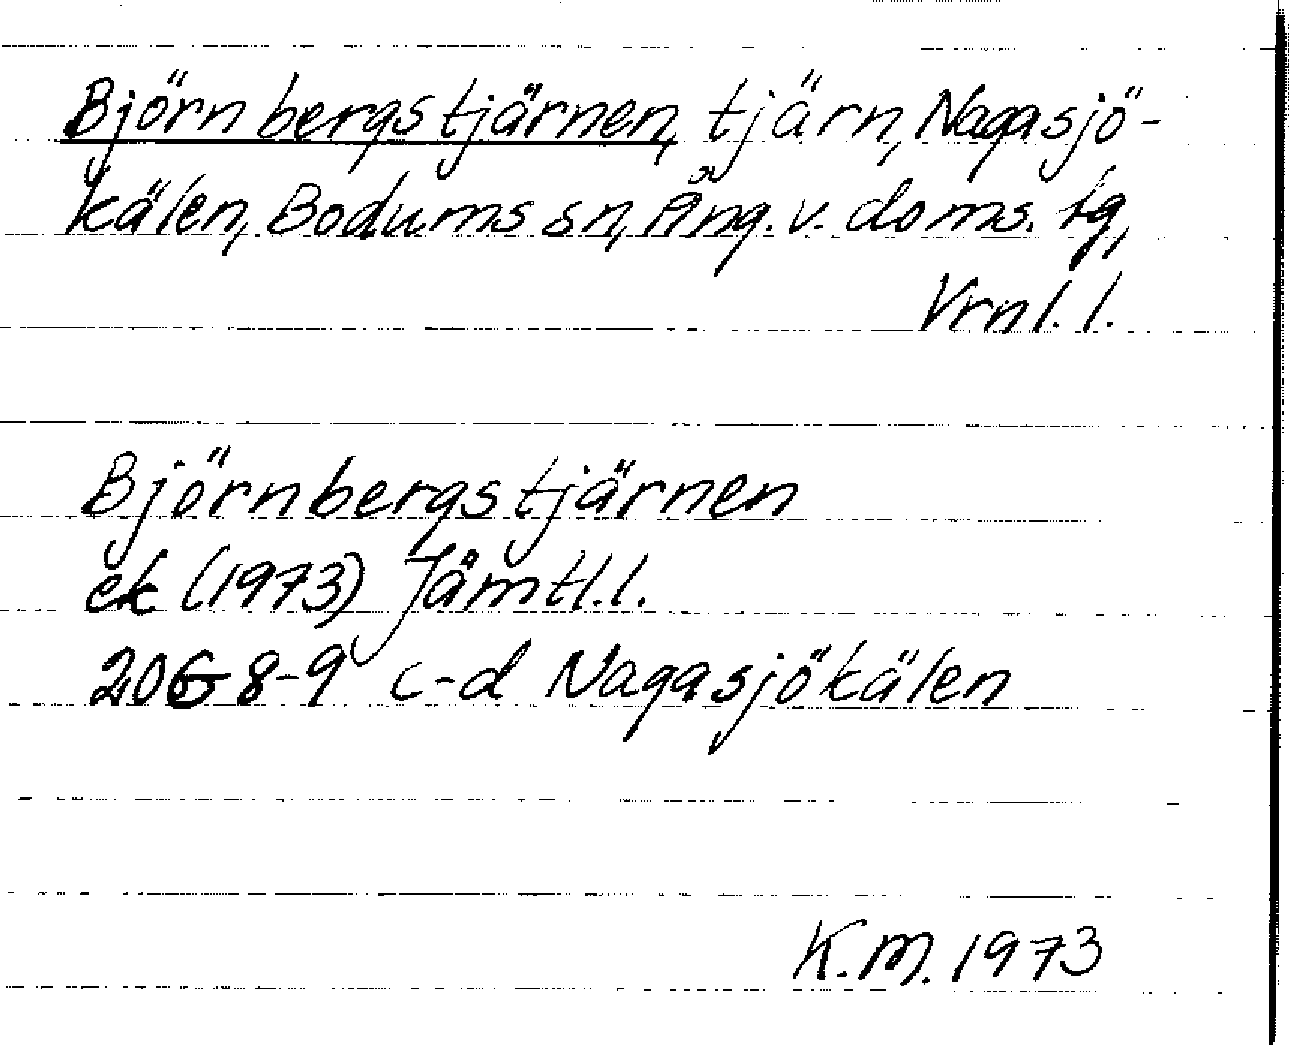 Björnbergstjärnen, tjärn, Nagasjö-
kälen, Bodums sn, Ång. v. doms. tg,
Vrnl. l.
Björnbergstjärnen
ek (1973) Jämtl. l.
206 8-9 c-d Nagasjökälen
K.M. 1973